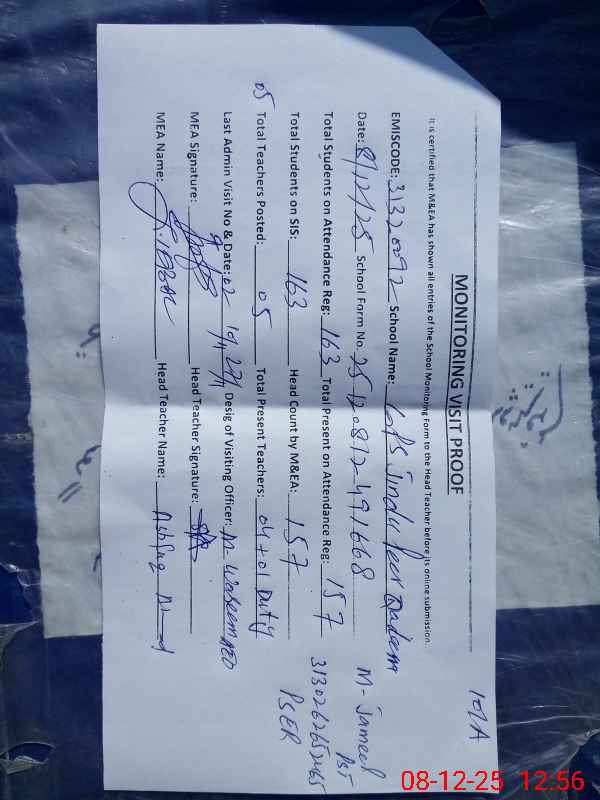 101A
MONITORING VISIT PROOF
It is certified that M&EA has shown all entries of the School Monitoring Form to the Head Teacher before its online submission.
EMISCODE: 31320092 School Name: GPS Jindu Peer Qadeem
Date: 8/12/25 School Form No. 25120812-491668
Total Students on Attendance Reg: 163 Total Present on Attendance Reg: 157
Total Students on SIS: 163 Head Count by M&EA: 157
05 Total Teachers Posted: 05 Total Present Teachers: 04+01 Duty
Last Admin Visit No & Date: 02 Desig of Visiting Officer: M. Waseem AEO
MEA Signature: Head Teacher Signature:
MEA Name: Head Teacher Name: Ashfaq
M- Jameel PST
PSER
08-12-25 12:56